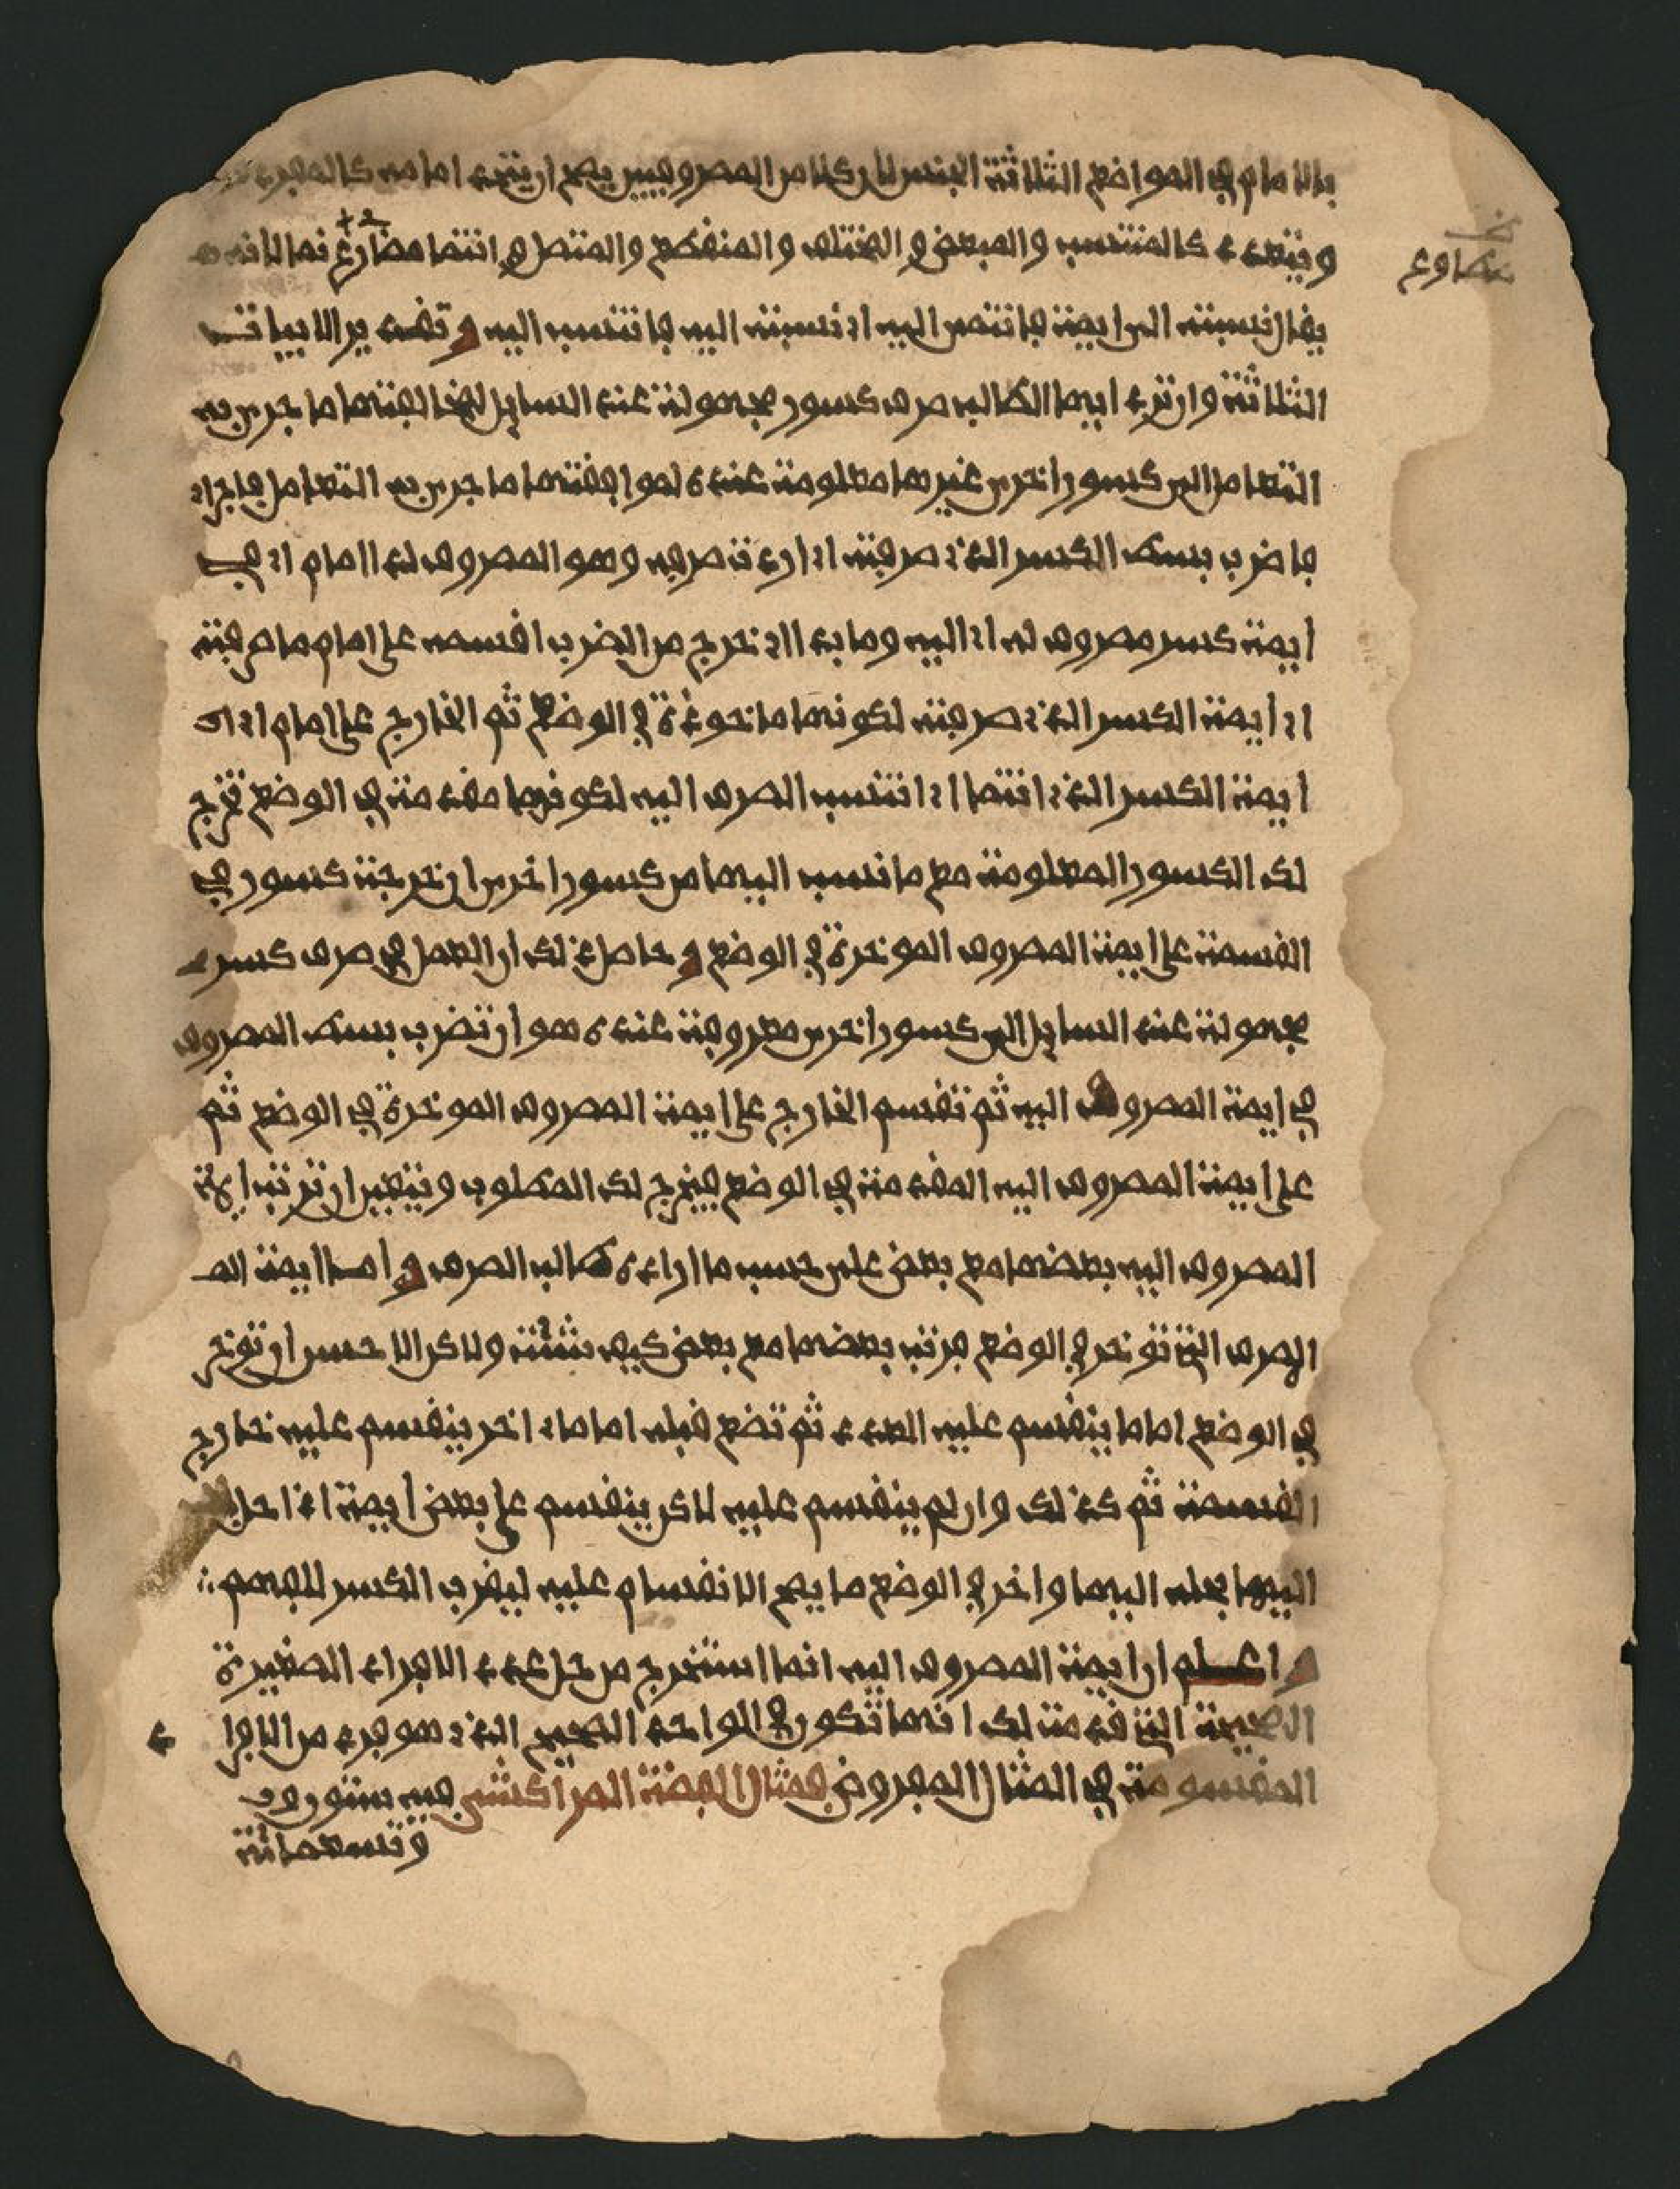 بالامام في المواضع الثلاثة الجنس لان كلا من المصروفين يصح ان يتحد امامه كالمفرد
ويتعدد كالمنتسب والمبعض والمختلف والمنقطع والمتصل وانتما مضارع نما لانه
نخ مطاوع
يقال نسبته الى ابيه فانتمى اليه اذ نسبته اليه فانتسب اليه وتقدير الابيات
الثلاثة وان ترد ايها الطالب صرف كسور مجهولة عند السائل لمخالفتها ما جرى به
التعامل الى كسور اخرى غيرها معلومة عنده لموافقتها ما جرى به التعامل فاجراد
فاضرب بسط الكسر الذي صرفته اذ اردت صرفه وهو المصروف لدا امام اذ في
ايمة كسر مصروف له اذ اليه وما بدا اذ خرج من الضرب اقسمه على امام ما صرفته
اذ ايمة الكسر الذي صرفته لكونها ماخوذة في الوضع ثم الخارج على امام اذ اى
ايمة الكسر الذي انتما اذ انتسب الصرف اليه لكونها مقدمة في الوضع تخرج
لك الكسور المعلومة مع ما نسب اليها من كسور اخرى ان خرجت كسور في
القسمة على ايمة المصروف الموخرة في الوضع وحاصل ذلك ان العمل في صرف كسر
مجهولة عند السائل الى كسور اخرى معروفة عنده هو ان تضرب بسط المصروف
في ايمة المصروف اليه ثم تقسم الخارج على ايمة المصروف الموخرة في الوضع ثم
على ايمة المصروف اليه المقدمة في الوضع فيخرج لك المطلوب ويتعين ان ترتب ايمة
المصروف اليه بعضها مع بعض على حسب ما اراده طالب الصرف واما ايمة المـ
الصرف التي توخر في الوضع فرتب بعضها مع بعض كيف شئت ولاكن الاحسن ان توخر
في الوضع اماما ينقسم عليه العدد ثم تضع قبله اماما اخر ينقسم عليه خارج
القسمة ثم كذلك وان لم ينقسم عليه لاكن ينقسم على بعض ايمة اذا حل
اليها بحله اليها واخر في الوضع ما يصح الانقسام عليه ليقرب الكسر للفهم
واعلم ان ايمة المصروف اليه انما استخرج من حل عدد الافراد الصغيرة
الصحيحة التي قدمت لك انها تكون في الواحد الصحيح الذي هو فرد من الافرا د
المقسومة في المثال المفروض فمثال الفضة المراكشى فيه ستون وو
وتسعمائة